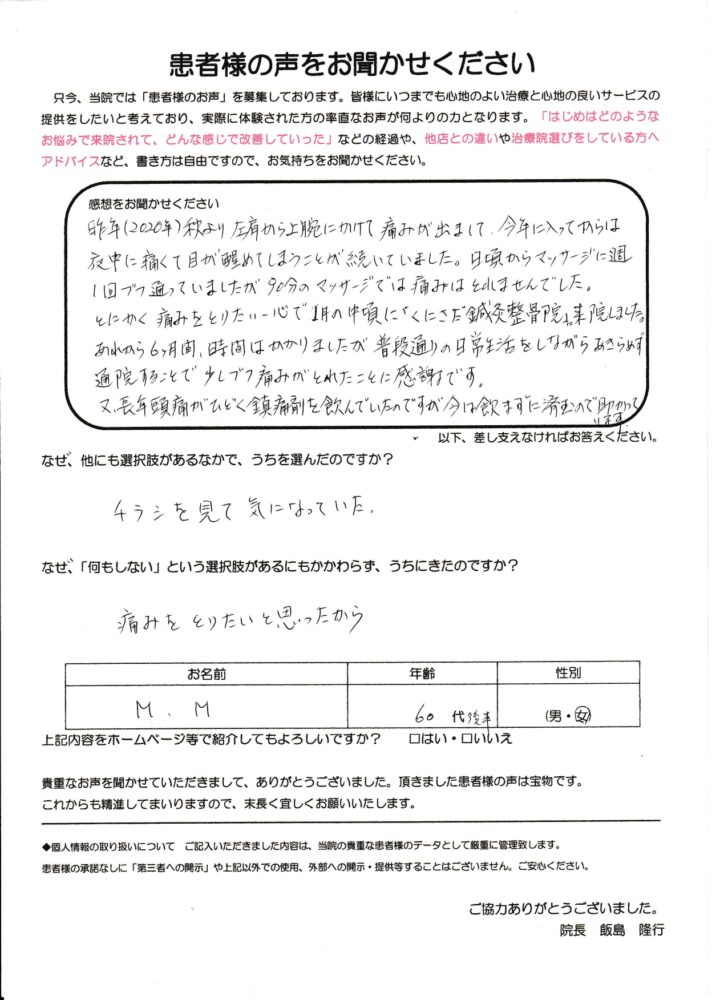 患者様の声をお聞かせください
只今、当院では「患者様のお声」を募集しております。皆様にいつまでも心地のよい治療と心地の良いサービスの
提供をしたいと考えており、実際に体験された方の率直なお声が何よりの力となります。「はじめはどのような
お悩みで来院されて、どんな感じで改善していった」などの経過や、他店との違いや治療院選びをしている方へ
アドバイスなど、書き方は自由ですので、お気持ちをお聞かせください。
感想をお聞かせください
昨年(2020年)秋より左肩から上腕にかけて痛みが出まして、今年に入ってからは
夜中に痛くて目が醒めてしまうことが続いていました。日頃からマッサージに週
1回ブツ通っていましたが90分のマッサージでは痛みはとれませんでした。
とにかく痛みをとりたい一心で1月の中頃に「くにさだ鍼灸整骨院」来院しました。
あれから6ヶ月間、時間はかかりましたが普段通りの日常生活をしながらあきらめず
通院することで少しブツ痛みがとれたことに感謝です。
又、長年頭痛がひどく鎮痛剤を飲んでいたのですが今は飲まずに済むので助かって
います
以下、差し支えなければお答えください。
なぜ、他にも選択肢があるなかで、うちを選んだのですか？
チラシを見て気になっていた。
なぜ、「何もしない」という選択肢があるにもかかわらず、うちにきたのですか？
痛みをとりたいと思ったから
お名前 年齢 性別
M.M 60代後半 (男・女)
上記内容をホームページ等で紹介してもよろしいですか？ □はい・□いいえ
貴重なお声を聞かせていただきまして、ありがとうございました。頂きました患者様の声は宝物です。
これからも精進してまいりますので、末長く宜しくお願いいたします。
◆個人情報の取り扱いについて ご記入いただきました内容は、当院の貴重な患者様のデータとして厳重に管理致します。
患者様の承諾なしに「第三者への開示」や上記以外での使用、外部への開示・提供等することはございません。ご安心ください。
ご協力ありがとうございました。
院長 飯島 隆行